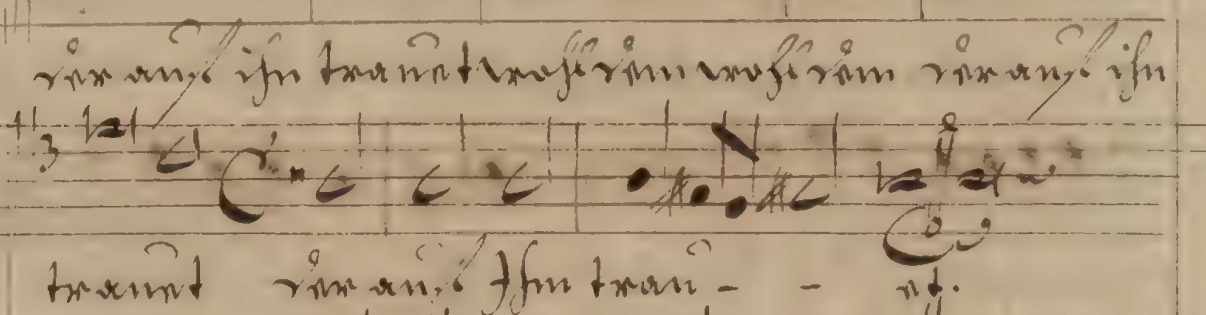 der auf ihn trauet wohl dem wohl dem der auf ihn
3
trauet der auf Ihm trau - - et.